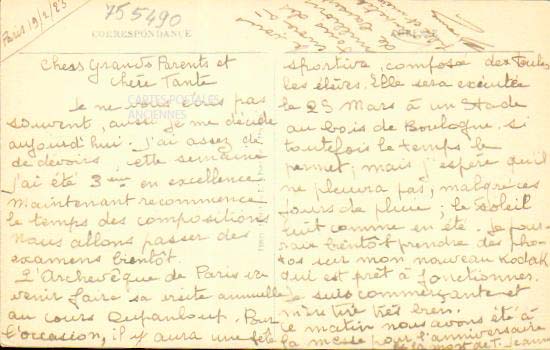 Paris 19/2/23
755490
CORRESPONDANCE
ADRESSE
CARTES POSTALES
ANCIENNES
Chers Grands Parents et
chère Tante
Je ne vous écris pas
souvent, aussi je me décide
aujourd'hui. J'ai assez de
de devoirs cette semaine
j'ai été 3ème en excellence
maintenant recommence
le temps des compositions
Nous allons passer des
examens bientôt.
L'Archevêque de Paris va
venir faire sa visite annuelle
au cours Dupanloup. Pour
l'occasion, il y aura une fête
sportive, composée de toutes
les élèves. Elle sera exécutée
le 25 Mars à un Stade
au bois de Boulogne. si
toutefois le temps le
permet, mais j'espère qu'il
ne pleuvra pas, malgré ces
jours de pluie, le soleil
luit comme en été. Je pour-
rais bientôt prendre des pho-
tos sur mon nouveau Kodak
qui est prêt à fonctionner.
Je suis commerçante et
m'en tire très bien.
Ce matin nous avons été à
la messe pour l'anniversaire
de la mort de T. Jeanne